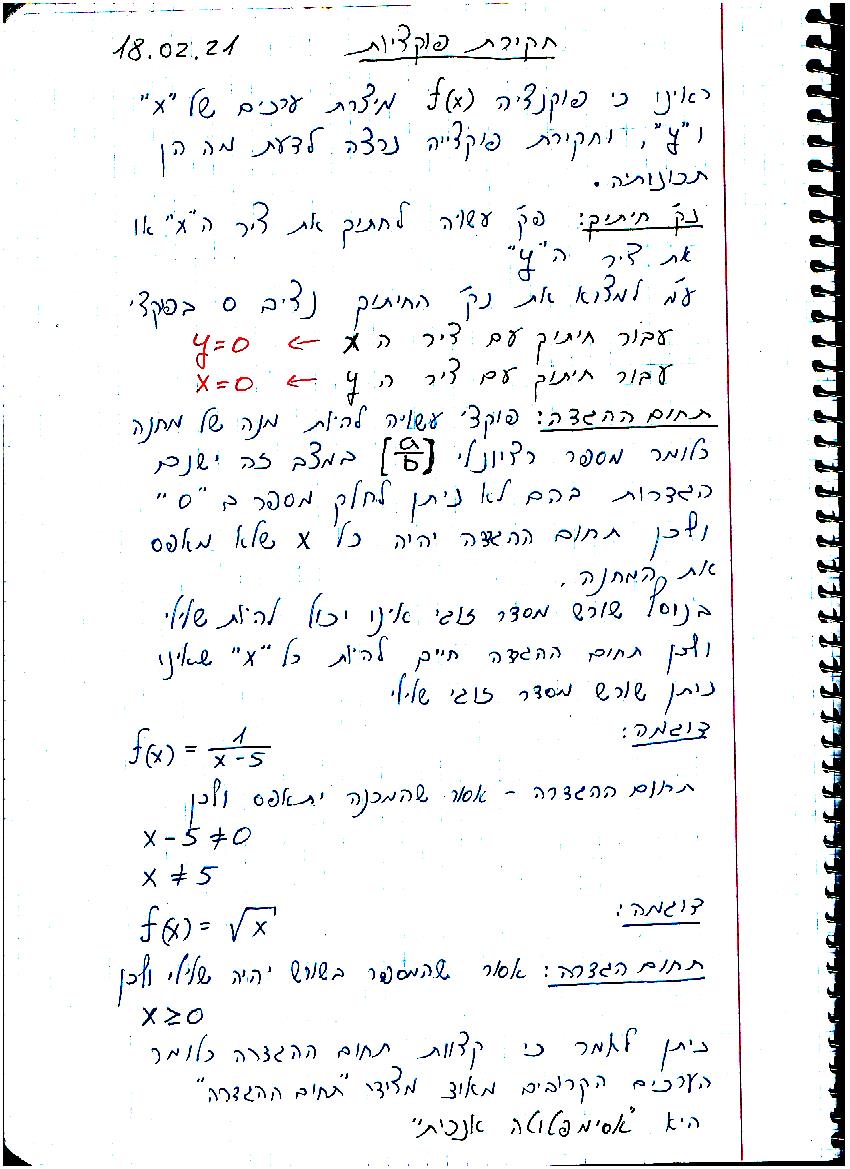 חקירת פוקציות 18.02.21
ראינו כי פוקנציה f(x) מיצרת ערכים של "x"
ו"y", וחקירת פוקצייה נרצה לדעת מה הן
תכונותיה.
נק' חיתוק: פק' עשויה לחתוק את ציר ה"x" או
את ציר ה"y"
ע"מ למצוא את נק' החיתוק נציב 0 בפוקצי'
עבור חיתוק עם ציר ה x ← y=0
עבור חיתוק עם ציר ה y ← x=0
תחום ההגדה: פוקצי' עשויה להיות מנה של מחנה
כלומר מספר רציונלי [a/b] במצב זה ישנם
הגדרות בהם לא ניתן לחלק מספר ב "0"
ולכן תחום ההגדה יהיה כל x שלא מאפס
את המחנה.
בנוסף שורש מסדר זוגי אינו יכול להיות שלילי
ולכן תחום ההגדה חייב להיות כל "x" שאינו
נותן שורש מסדר זוגי שלילי
דוגמה:
f(x) = 1/(x-5)
תחום ההגדרה - אסור שהמכנה יתאפס ולכן
x-5≠0
x≠5
דוגמה:
f(x) = √x
תחום הגדרה: אסור שהמספר בשורש יהיה שלילי ולכן
x≥0
ניתן לאמר כי קצוות תחום ההגדרה כלומר
הערכים הקרובים מאוד מצידי "תחום ההגדרה"
היא "אסימפטוטה אנכית"